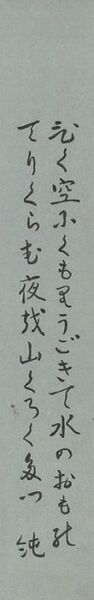 ひく空尓くもりうごきて水のおも能
てりくらむ夜越山くろく多つ 純